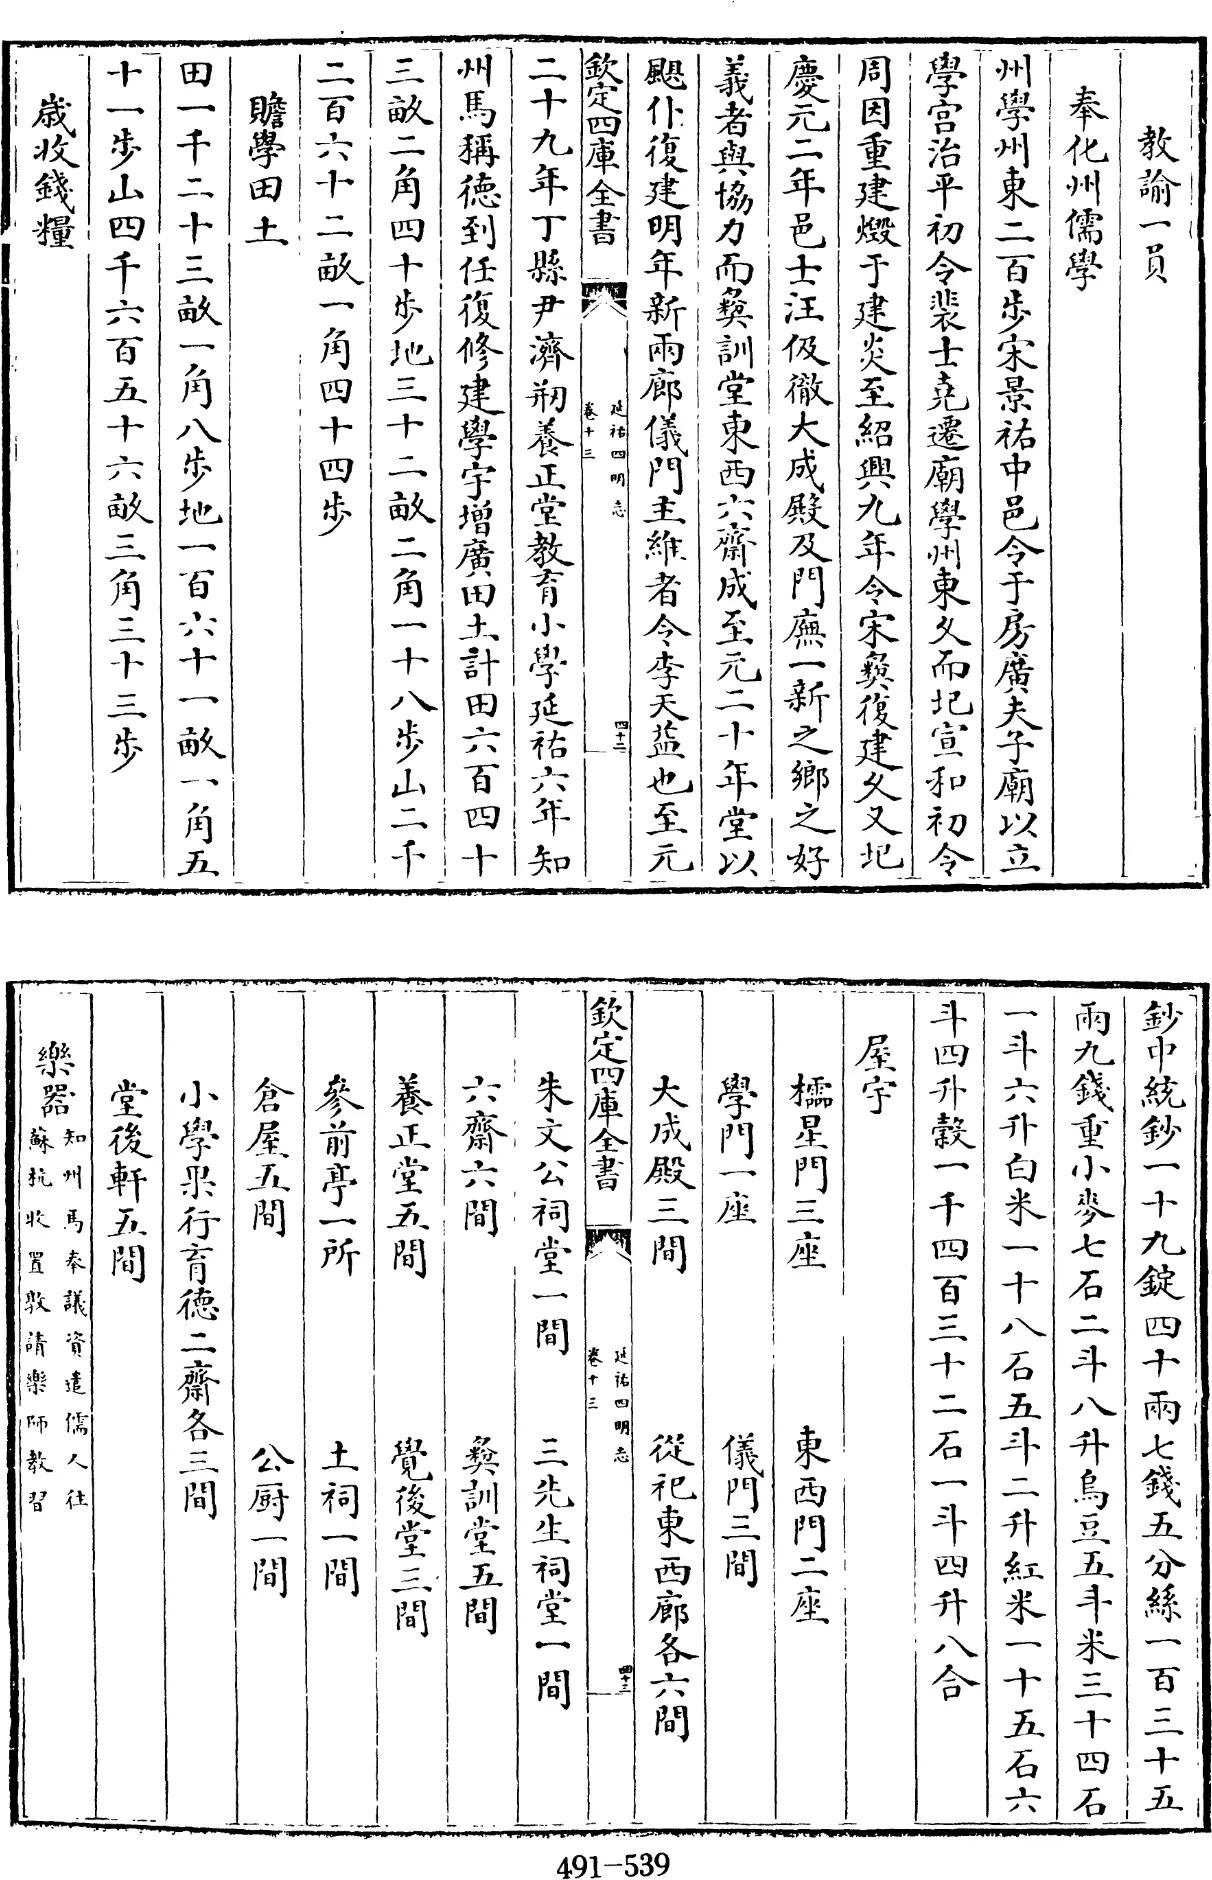 教諭一員
奉化州儒學
州學州東二百步宋景祐中邑令于房廣夫子廟以立
學宮治平初令裴士堯遷廟學州東久而圮宣和初令
周因重建燬于建炎至紹興九年令宋㒟復建久又圮
慶元二年邑士汪伋徹大成殿及門廡一新之鄉之好
義者與協力而彛訓堂東西六齋成至元二十年堂以
颶仆復建明年新兩廊儀門主維者令李天益也至元
欽定四庫全書
延祐四明志
卷十三
四十二
二十九年丁縣尹濟剏養正堂教育小學延祐六年知
州馬稱德到任復修建學宇增廣田土計田六百四十
三畝二角四十步地三十二畝二角一十八步山二千
二百六十二畝一角四十四步
贍學田土
田一千二十三畝一角八步地一百六十一畝一角五
十一步山四千六百五十六畝三角三十三步
歲收錢糧
鈔中統鈔一十九錠四十兩七錢五分絲一百三十五
兩九錢重小麥七石二斗八升烏豆五斗米三十四石
一斗六升白米一十八石五斗二升紅米一十五石六
斗四升穀一千四百三十二石一斗四升八合
屋宇
櫺星門三座 東西門二座
學門一座 儀門三間
大成殿三間 從祀東西廊各六間
欽定四庫全書
延祐四明志
卷十三
四十三
朱文公祠堂一間 三先生祠堂一間
六齋六間 彛訓堂五間
養正堂五間 覺後堂三間
參前亭一所 土祠一間
倉屋五間 公厨一間
小學果行育德二齋各三間
堂後軒五間
樂器知州馬奉議資遣儒人往
蘇杭收置敦請樂師教習
491-539